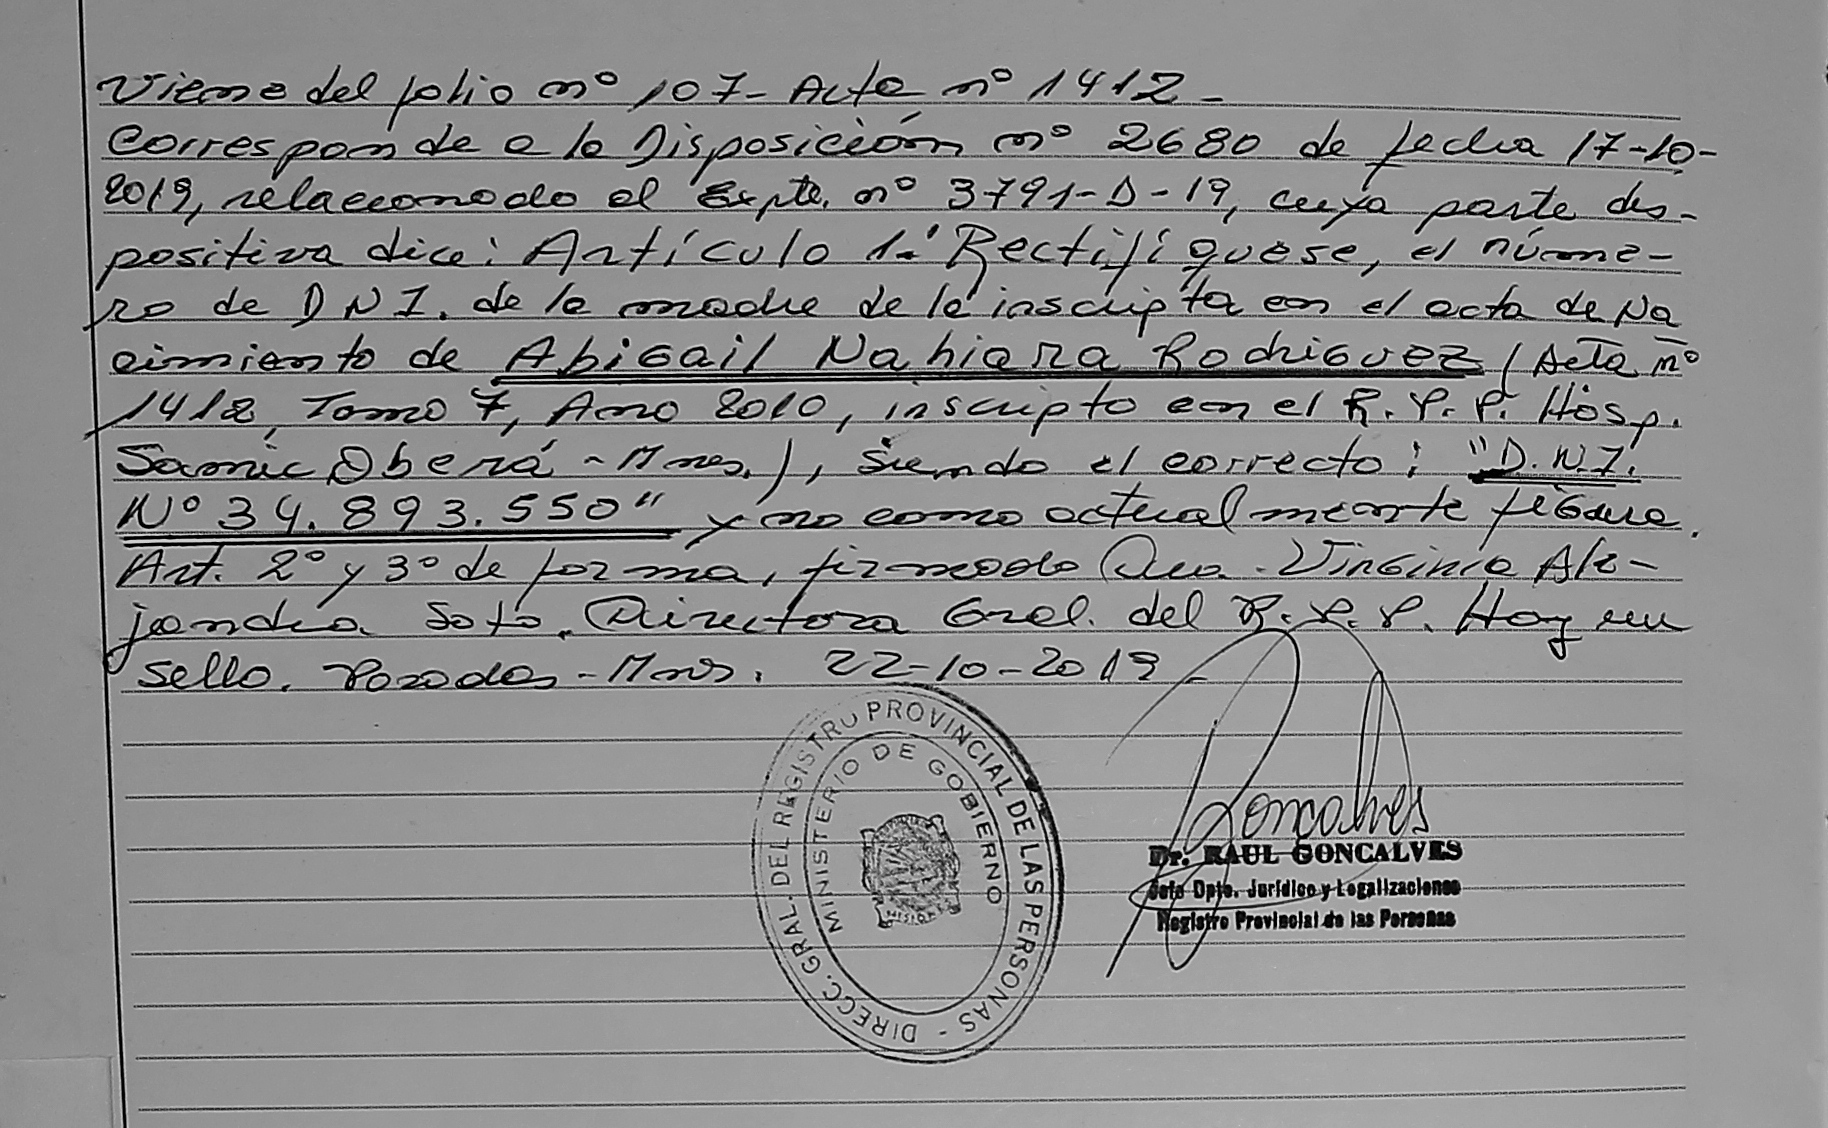 Viene del folio nº 107- Acta nº 1412-
Corresponde a la Disposición nº 2680 de fecha 17-10-
2019, relacionado al Expte. nº 3791-D-19, cuya parte dis-
positiva dice: Artículo 1º Rectifíquese, el núme-
ro de DNI. de la madre de la inscripta en el acta de Na
cimiento de Abigail Nahiara Rodriguez (Acta nº
1412, Tomo 7, Año 2010, inscripto en el R.P.P. Hosp.
Samic Oberá - Mnes.), siendo el correcto: "D.N.I.
Nº 34.893.550" y no como actualmente figura.
Art. 2º y 3º de forma, firmado Dra. Virginia Ale-
jandra Soto. Directora Gral. del R.P.P. Hay un
sello. Posadas - Mnes. 22-10-2019-
DIRECC. GRAL. DEL REGISTRO PROVINCIAL DE LAS PERSONAS -
MINISTERIO DE GOBIERNO
MISIONES
Goncalves
Dr. RAUL GONCALVES
Jefe Dpto. Jurídico y Legalizaciones
Registro Provincial de las Personas